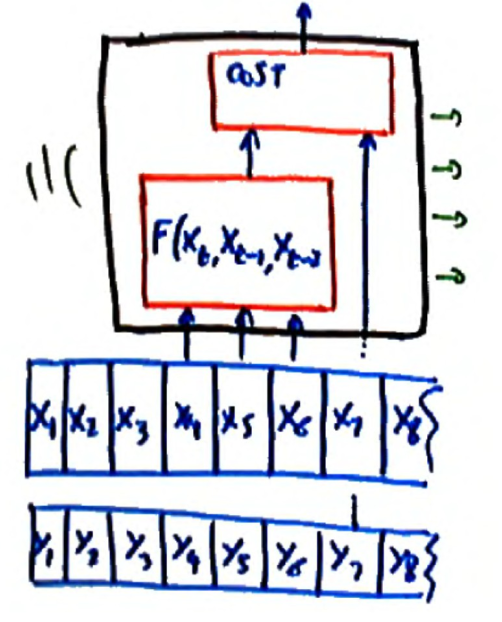 COST
F(X_t, X_{t-1}, X_{t-2}
X_1 X_2 X_3 X_4 X_5 X_6 X_7 X_8
Y_1 Y_2 Y_3 Y_4 Y_5 Y_6 Y_7 Y_8